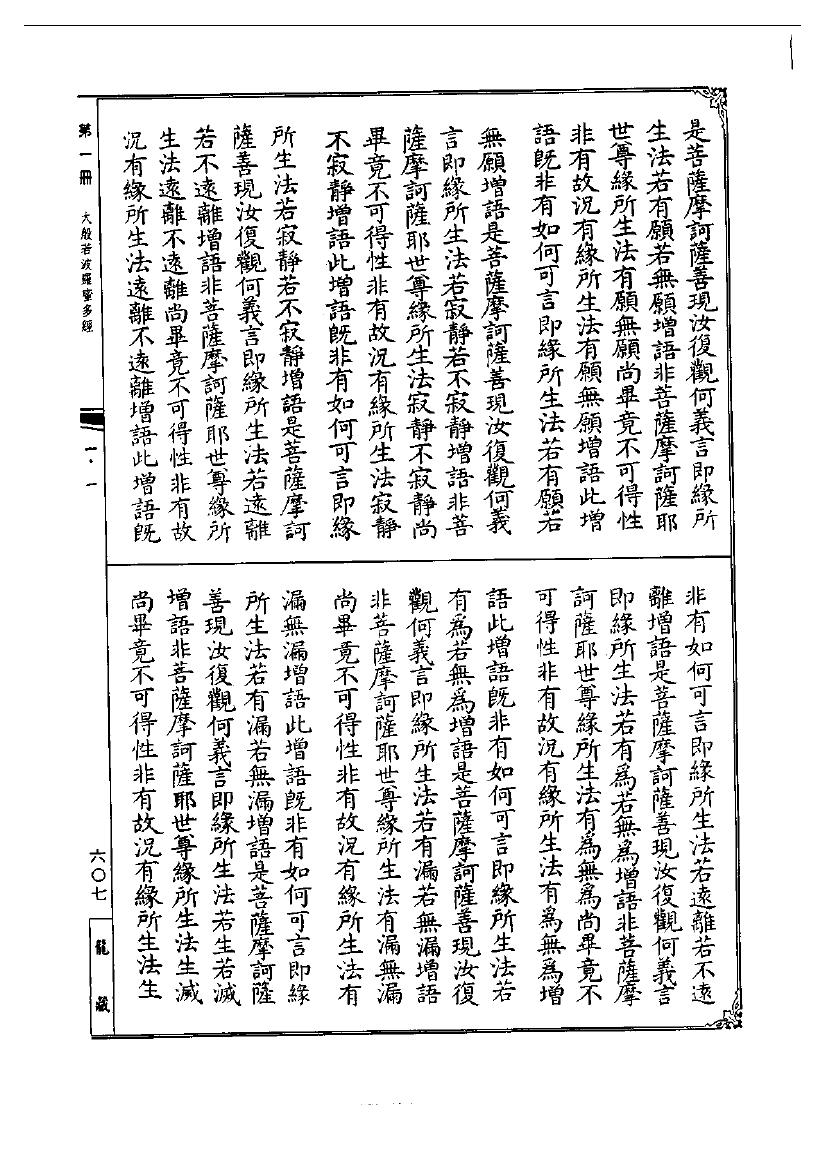 是菩薩摩訶薩善現汝復觀何義言即緣所
生法若有願若無願增語非菩薩摩訶薩耶
世尊緣所生法有願無願尚畢竟不可得性
非有故況有緣所生法有願無願增語此增
語既非有如何可言即緣所生法若有願若
無願增語是菩薩摩訶薩善現汝復觀何義
言即緣所生法若寂靜若不寂靜增語非菩
薩摩訶薩耶世尊緣所生法寂靜不寂靜尚
畢竟不可得性非有故況有緣所生法寂靜
不寂靜增語此增語既非有如何可言即緣
所生法若寂靜若不寂靜增語是菩薩摩訶
薩善現汝復觀何義言即緣所生法若遠離
若不遠離增語非菩薩摩訶薩耶世尊緣所
生法遠離不遠離尚畢竟不可得性非有故
況有緣所生法遠離不遠離增語此增語既
非有如何可言即緣所生法若遠離若不遠
離增語是菩薩摩訶薩善現汝復觀何義言
即緣所生法若有為若無為增語非菩薩摩
訶薩耶世尊緣所生法有為無為尚畢竟不
可得性非有故況有緣所生法有為無為增
語此增語既非有如何可言即緣所生法若
有為若無為增語是菩薩摩訶薩善現汝復
觀何義言即緣所生法若有漏若無漏增語
非菩薩摩訶薩耶世尊緣所生法有漏無漏
尚畢竟不可得性非有故況有緣所生法有
漏無漏增語此增語既非有如何可言即緣
所生法若有漏若無漏增語是菩薩摩訶薩
善現汝復觀何義言即緣所生法若生若滅
增語非菩薩摩訶薩耶世尊緣所生法生滅
尚畢竟不可得性非有故況有緣所生法生
第一冊 大般若波羅蜜多經
一·一
六〇七
龍藏